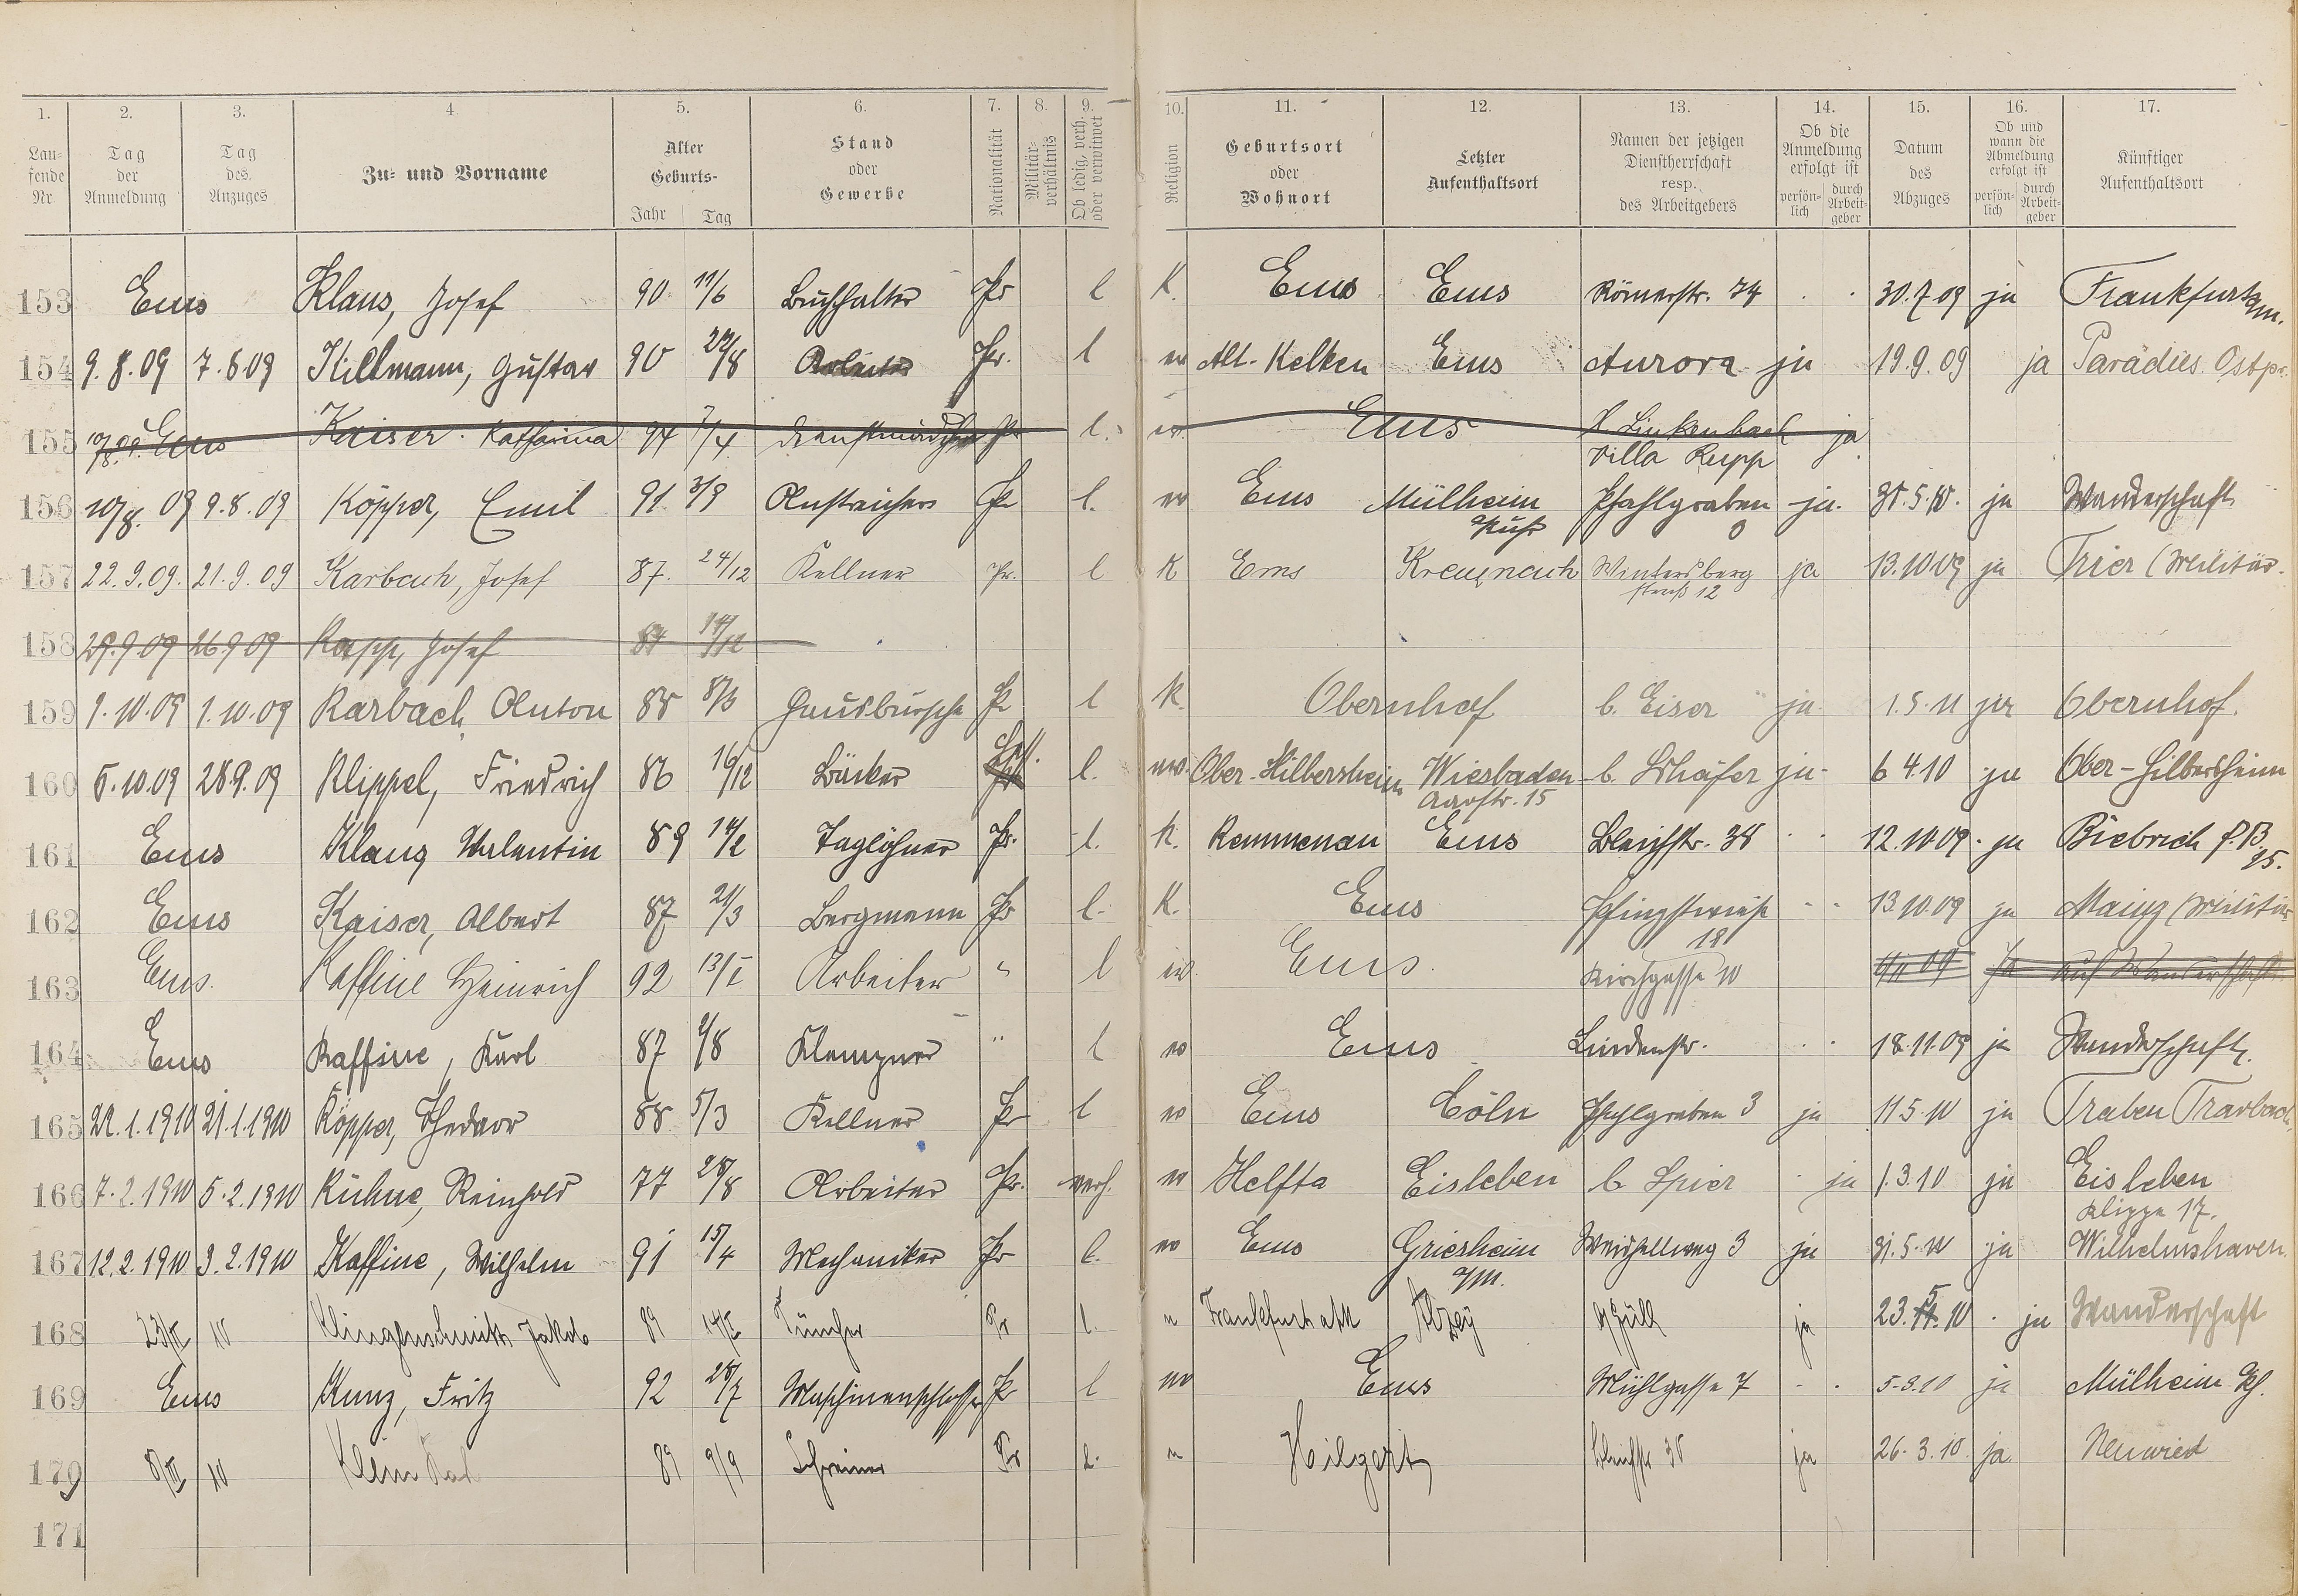 1. 2. 3. 4 5. 6. 7. 8. 9. 10. 11. 12. 13. 14. 15. 16. 17.
Lau-fende Nr. Tag der Anmeldung Tag des Anzuges Zu- und Vorname Alter Geburts- Jahr Tag Stand oder Gewerbe Nationalität Militär-verhältnis Ob ledig, verh. oder verwitwet Religion Geburtsort oder Wohnort Letzter Aufenthaltsort Namen der jetzigen Dienstherrschaft resp. des Arbeitgebers Ob die Anmeldung erfolgt ist persön-lich durch Arbeit-geber Datum des Abzuges Ob und wann die Abmeldung erfolgt ist persön-lich durch Arbeit-geber Künftiger Aufenthaltsort
153 Ems Klaus, Josef 90 11/6 Buchhalter Pr l K. Ems Ems Römerstr. 74 30.7.09 ja Frankfurt a/m.
154 9.8.09 7.8.09 Killmann, Gustav 90 22/8 Arbeiter Pr. l ev Alt-Kelken Ems Aurora ja 19.9.09 ja Paradies Ostpr.
155 10/8.09. Ems Kaiser Katharina 94 7/4 Dienstmädchen Pr l. ev. Ems H Linkenbach ja
Villa Rupp
156 10/8. 09 9.8.09 Köpper, Emil 91 3/9 Anstreicher Pr l. ev Ems Mülheim Pfahlgraben ja. 30.5.10. ja Wanderschaft
a/Ruhr
157 22.9.09. 21.9.09 Karbach, Josef 87. 24/12 Kellner Pr. l K Ems Kreuznach Wintersberg ja 13.10.09 ja Trier (Militär.
straß 12
158 29.9 09 26.9 09 Kapp, Josef 87 14/12
159 1.10.09 1.10.09 Karbach Anton 88 8/3 Hausbursche Pr l K. Obernhof b. Eiser ja 1.5.11 ja Obernhof.
160 5.10.09 28.9.09 Klippel, Friedrich 86 16/12 Bäcker Hess. l. ev. Ober-Hilbersheim Wiesbaden b. Schäfer ja 6 4.10 ja Ober-Hilbersheim
Aarstr. 15
161 Ems Klaus Valentin 89 14/2 Taglöhner Pr. l. K. Kemmenau Ems Bleichstr. 38 12.10.09. ja Biebrich
162 Ems Kaiser, Albert 87 21/3 Bergmann Pr l. K. Ems Pfingstwiese 13.10.09 ja Mainz (Militär
18
163 Ems. Kaffine Heinrich 92 13/I Arbeiter " l ev. Ems. Kirchgasse 10 09 Ja auf Wanderschaft
164 Ems Kaffine, Karl 87 /8 Klempner " l ev Ems Lindenstr. 18.11.09 ja Wanderschaft.
165 22.1.1910 21.1.1910 Köpper, Theodor 88 5/3 Kellner Pr l ev Ems Cöln Pfahlgraben 3 ja 11.5.10 ja Traben Trarbach
166 7.2.1910 5.2.1910 Kühne, Reinhold 77 28/8 Arbeiter Pr. verh. ev Helfta Eisleben b Spier ja 1.3.10 ja Eisleben
Klippe 17.
167 12.2.1910 3.2.1910 Kaffine, Wilhelm 91 15/4 Mechaniker Pr l. ev Ems Griesheim 3 ja 31.5.10 ja Wilhelmshaven
a/m.
168 23/II 10 Klingenschmitt Jakob 89 14/I Tüncher Pr l. Frankfurt a/M Alzey ja 23.5.10 ja Wanderschaft
169 Ems Kunz, Fritz 92 28/7 Maschinenschlosser Pr l ev Ems Mühlgasse 7 5.3.10 ja Mülheim
170 8/III 10 Klein 89 9/9 Schreiner Pr l. Hilgert Bleichstr 30 ja 26.3.10. ja. Neuwied
171